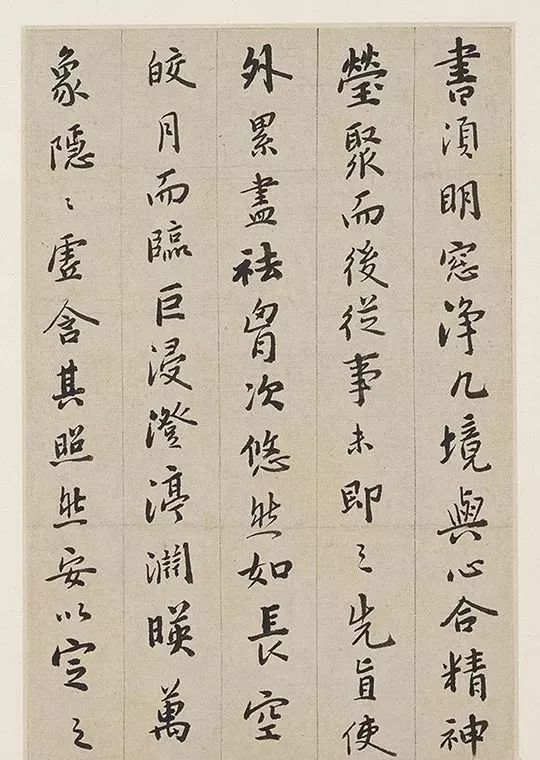 書須明窓浄几境與心合精神
瑩聚而後從事未即之先冝使
外累盡祛胷次悠然如長空
皎月而臨巨浸澄渟濶暎萬
象隱〻虛含其照然安以定之